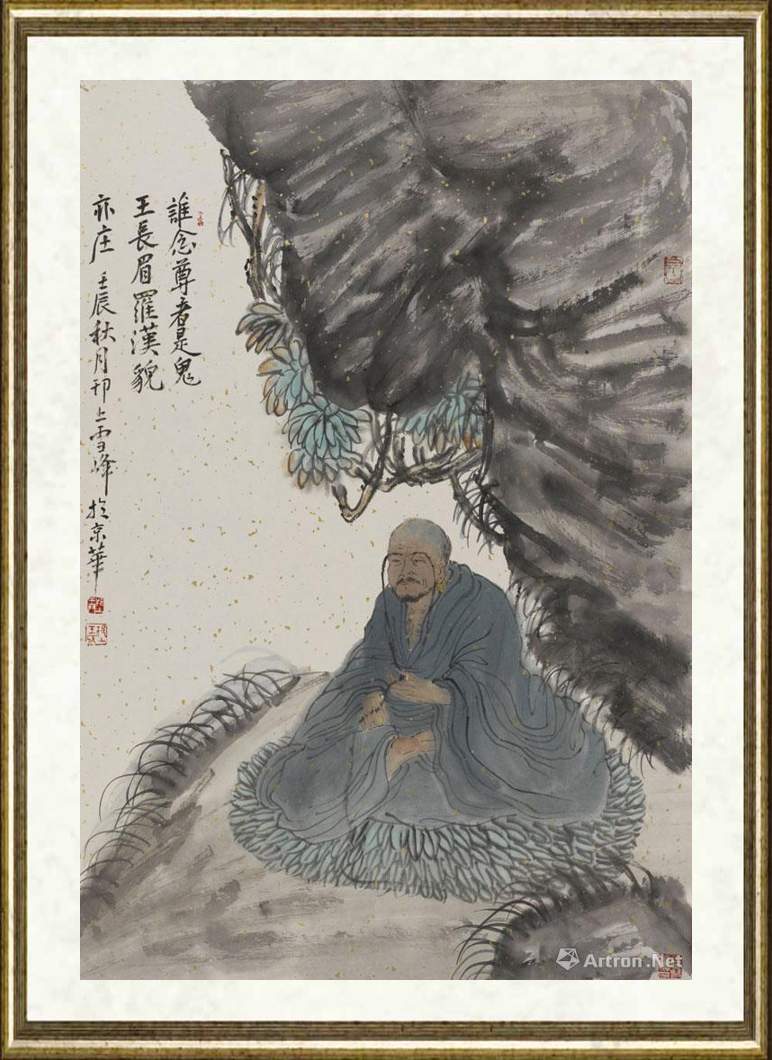 誰念尊者是鬼
王長眉羅漢貌
亦庄 壬辰秋月卬上雪峰於京華
Artron.Net